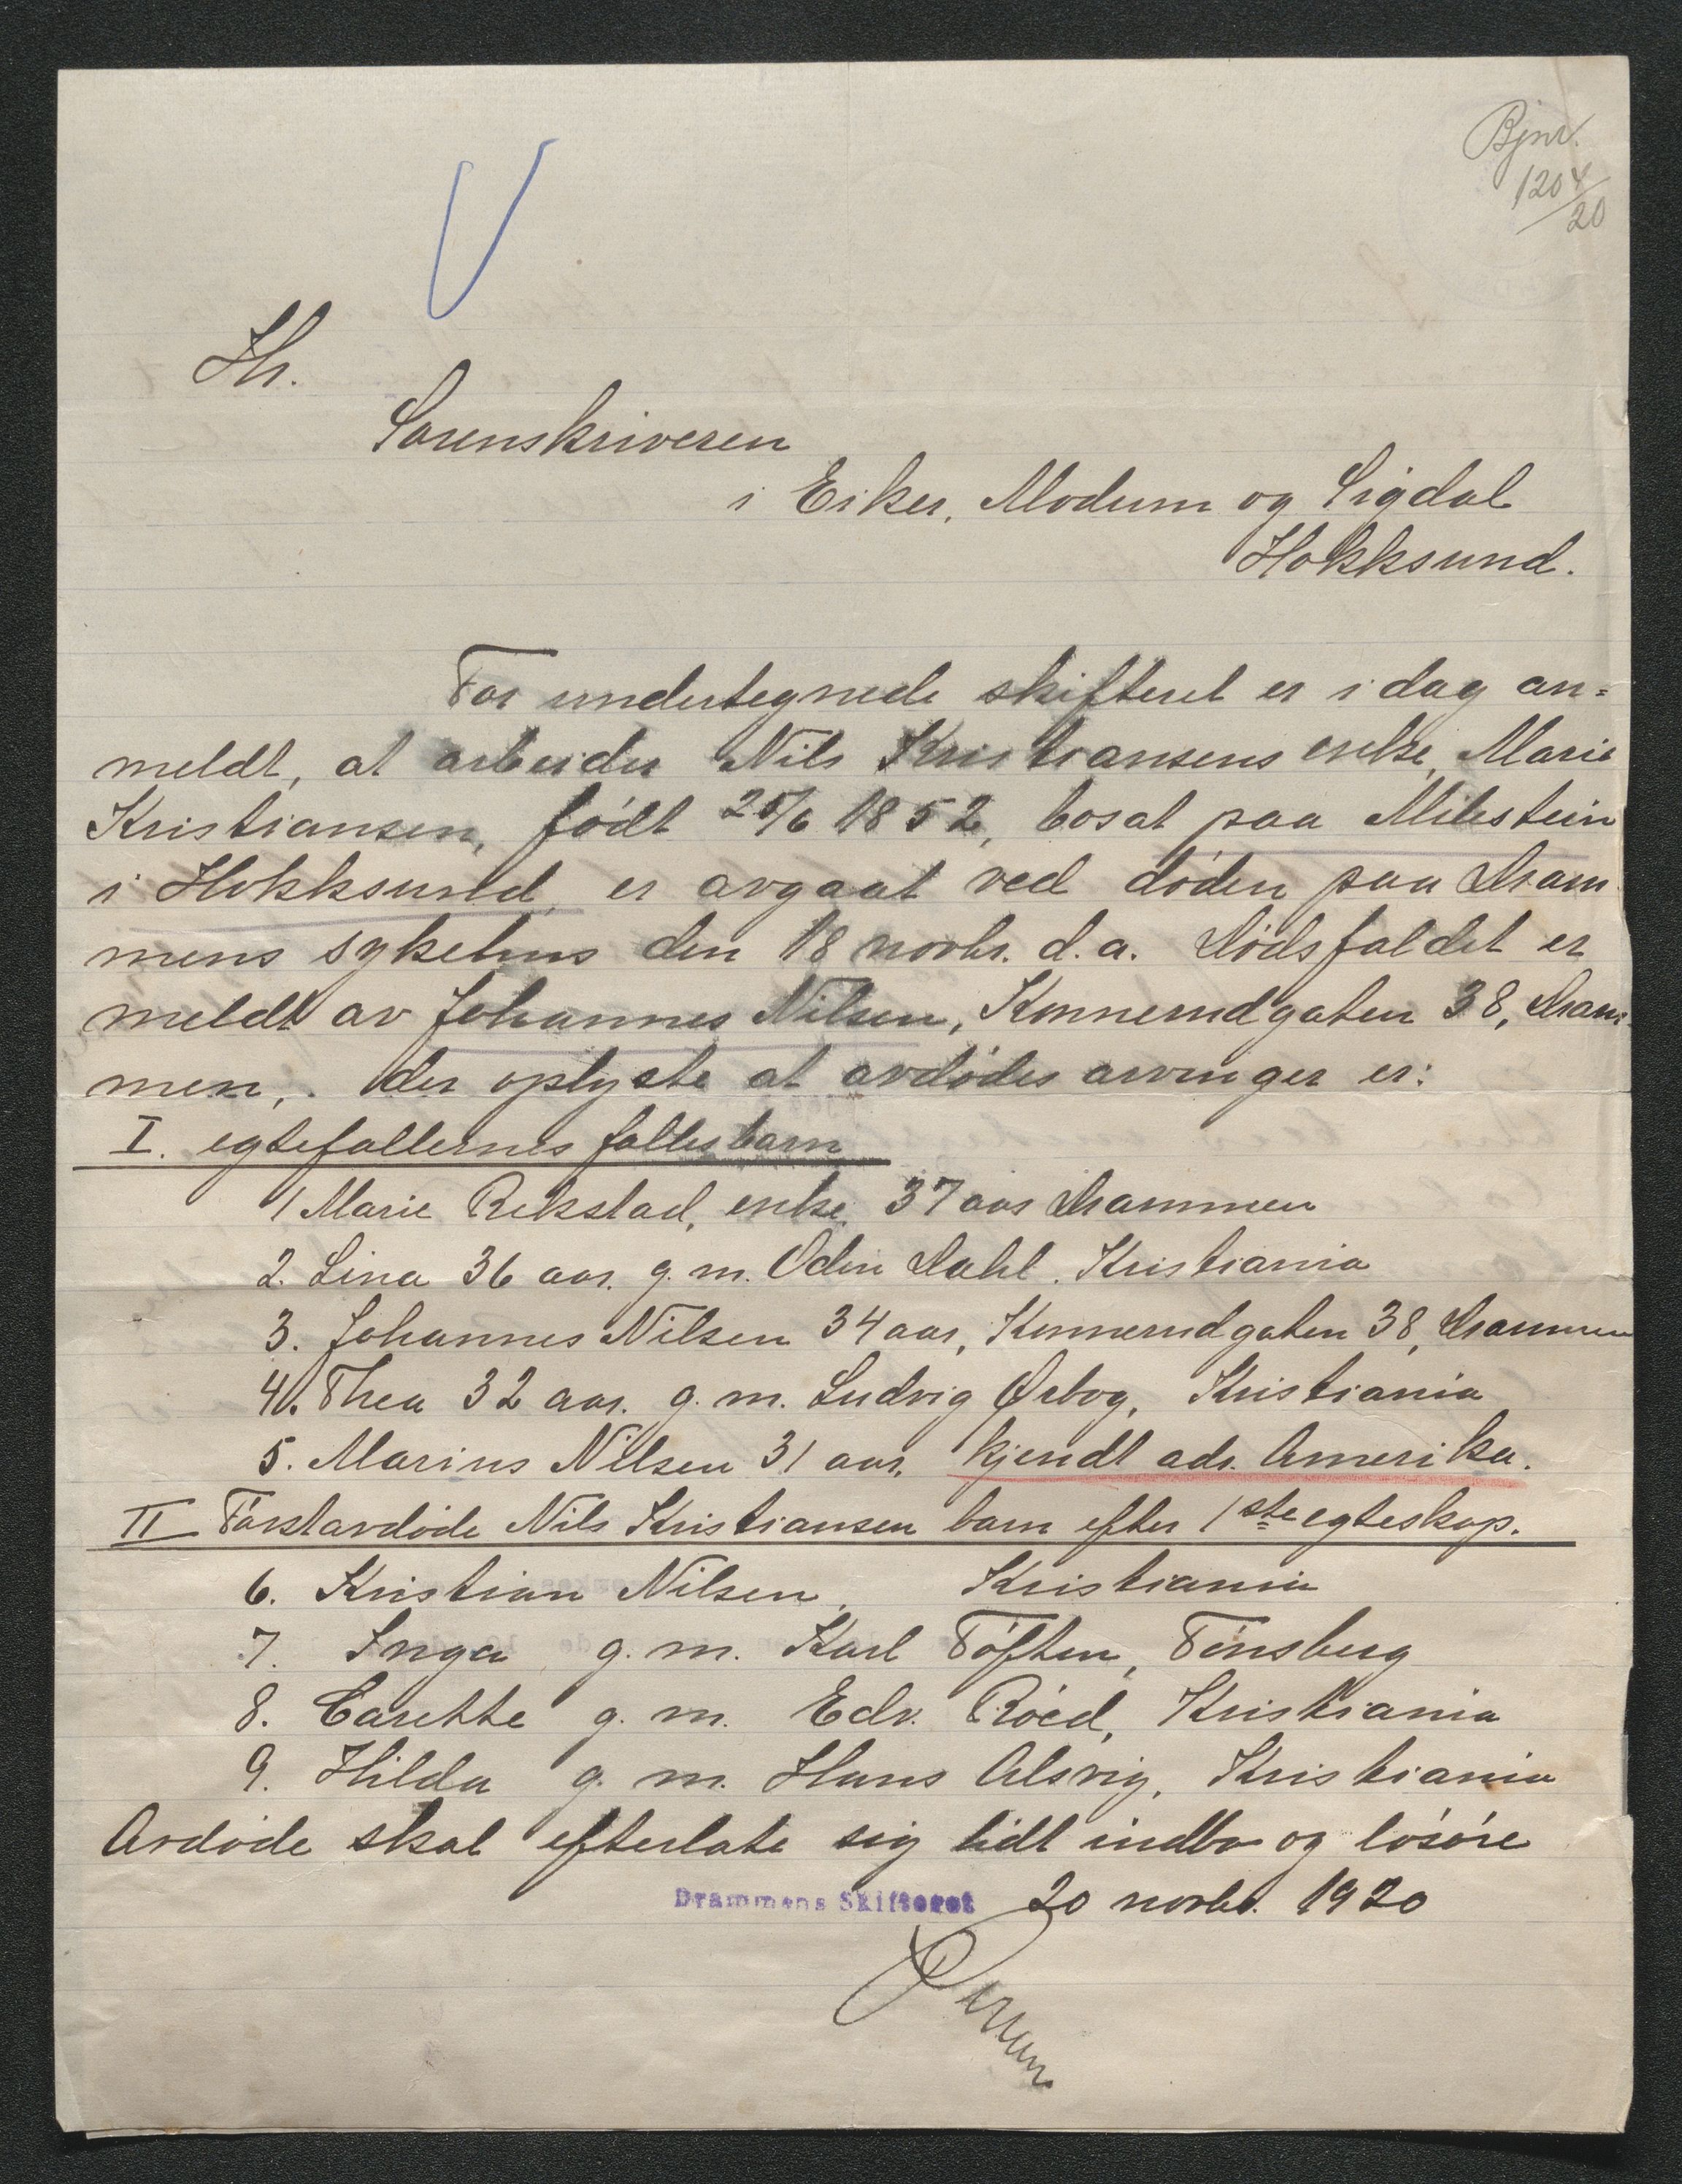 Bjnr.
1204/20
Hr.
Sorenskriveren
i Eiker, Modum og Sigdal
Hokksund.
For undertegnede skifteret er i dag an=
meldt, at arbeider Nils Kristiansens enke, Marie
Kristiansen, født 25/6 1852, bosat paa Milestein
i Hokksund, er avgaat ved døden paa Dram
mens sykehus den 18 novbr. d.a. Dødsfaldet er
meldt av Johannes Nilsen, Konnerudgaten 38, Dram
men, der oplyste at avdødes arvinger er:
I. egtefællernes fællesbarn
1 Marie Rekstad, enke, 37 aar Drammen
2. Lina 36 aar. g. m. Odin Dahl. Kristiania
3. Johannes Nilsen 34 aar, Konnerudgaten 38, Drammen
4. Thea 32 aar. g. m. Ludvig Ørbog, Kristiania
5. Marius Nilsen 31 aar, kjendt adr. Amerika.
II Førstavdøde Nils Kristiansen barn efter 1ste egteskap.
6. Kristian Nilsen, Kristiania
7. Inga g. m. Karl Tøften, Tønsberg
8. Carethe g. m. Edv. Röed, Kristiania
9. Hilda g. m. Hans Alsvig, Kristiania
Avdøde skal efterlate sig lidt indbo og løsøre
Drammens Skifteret 20 novbr. 1920